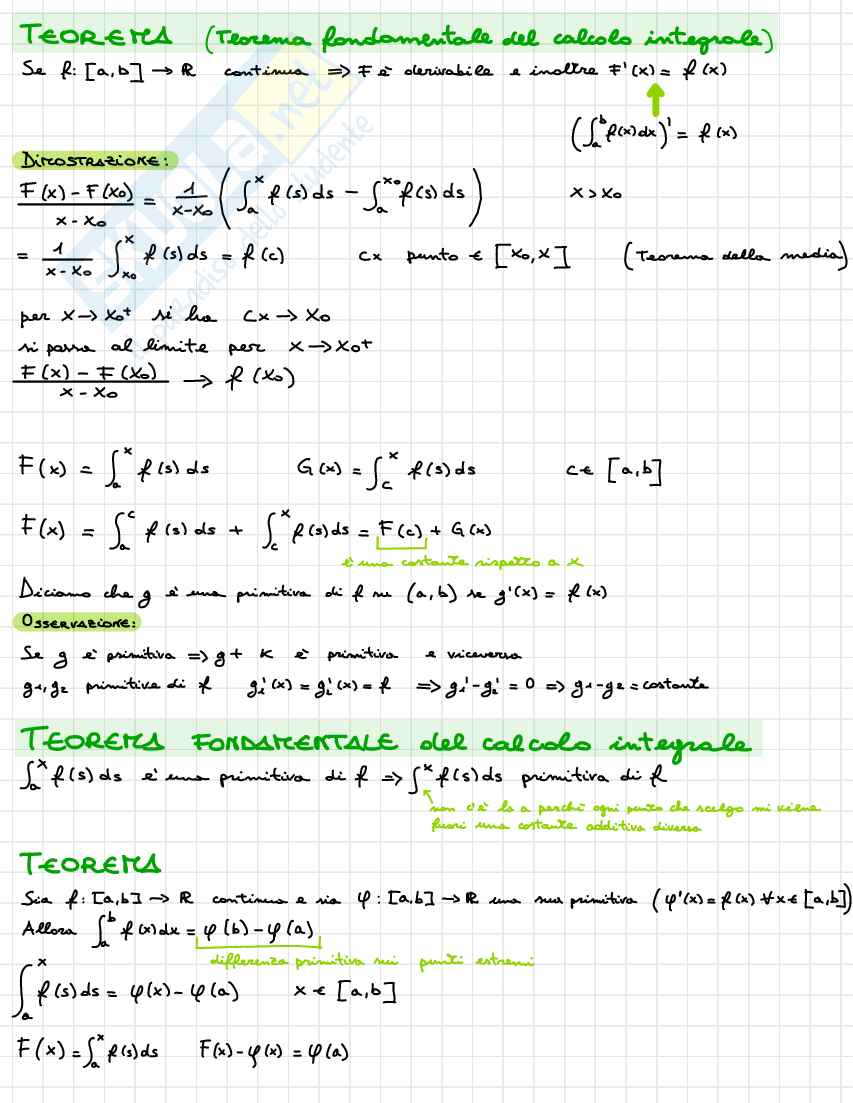 TEOREMA (Teorema fondamentale del calcolo integrale)
Se f: [a,b] → ℝ continua ⇒ F è derivabile e inoltre F'(x) = f(x)
(∫_a^b f(x)dx)' = f(x)
DIMOSTRAZIONE:
(F(x) - F(x₀))/(x - x₀) = 1/(x-x₀) (∫_a^x f(s)ds - ∫_a^x₀ f(s)ds) x > x₀
= 1/(x-x₀) ∫_x₀^x f(s)ds = f(c) cx punto ∈ [x₀,x] (Teorema della media)
per x → x₀⁺ si ha cx → x₀
si passa al limite per x → x₀⁺
(F(x) - F(x₀))/(x - x₀) → f(x₀)
F(x) = ∫_a^x f(s)ds G(x) = ∫_c^x f(s)ds c ∈ [a,b]
F(x) = ∫_a^c f(s)ds + ∫_c^x f(s)ds = F(c) + G(x)
è una costante rispetto a x
Diciamo che g è una primitiva di f su (a,b) se g'(x) = f(x)
OSSERVAZIONE:
Se g è primitiva ⇒ g + k è primitiva e viceversa
g₁,g₂ primitive di f g₁'(x) = g₂'(x) = f ⇒ g₁' - g₂' = 0 ⇒ g₁ - g₂ = costante
TEOREMA FONDAMENTALE del calcolo integrale
∫_a^x f(s)ds è una primitiva di f ⇒ ∫^x f(s)ds primitiva di f
non c'è la a perché ogni punto che scelgo mi viene
fuori una costante additiva diversa
TEOREMA
Sia f: [a,b] → ℝ continua e sia φ: [a,b] → ℝ una sua primitiva (φ'(x) = f(x) ∀x ∈ [a,b])
Allora ∫_a^b f(x)dx = φ(b) - φ(a)
differenza primitiva nei punti estremi
∫_a^x f(s)ds = φ(x) - φ(a) x ∈ [a,b]
F(x) = ∫_a^x f(s)ds F(x) - φ(x) = φ(a)